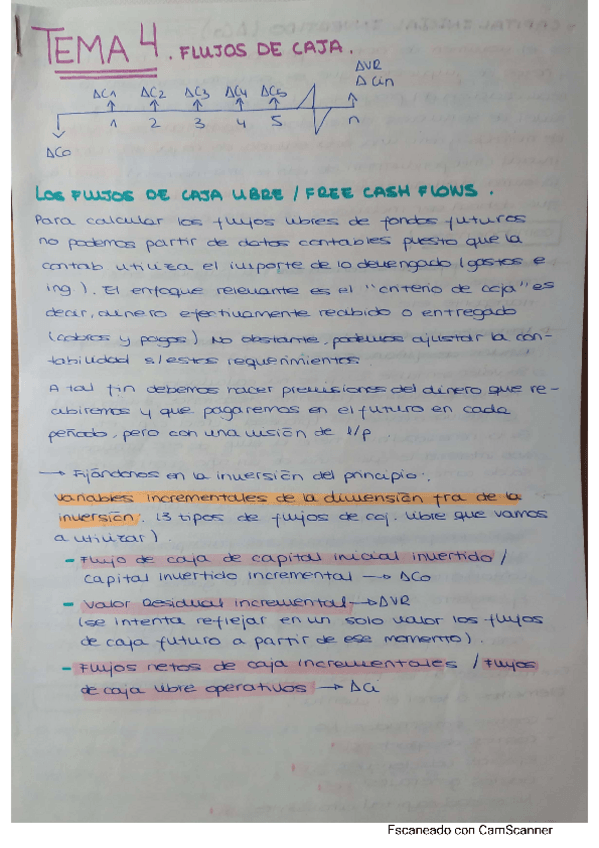 TEMA 4. FLUJOS DE CAJA.
ΔC1 ΔC2 ΔC3 ΔC4 ΔC5 ΔVR
ΔCin
1 2 3 4 5 n
ΔCo
LOS FLUJOS DE CAJA LIBRE / FREE CASH FLOWS.
Para calcular los flujos libres de fondos futuros
no podemos partir de datos contables puesto que la
contab utiliza el importe de lo devengado (gastos e
ing). El enfoque relevante es el "criterio de caja" es
decir, dinero efectivamente recibido o entregado
(cobros y pagos) No obstante, podemos ajustar la con-
tabilidad s/estos requerimientos.
A tal fin debemos hacer previsiones del dinero que re-
cibiremos y que pagaremos en el futuro en cada
período, pero con una visión de l/p.
→ Fijándonos en la inversión del principio:
variables incrementales de la dimensión fra de la
inversión. (3 tipos de flujos de caj. libre que vamos
a utilizar).
- Flujo de caja de capital inicial invertido /
capital invertido incremental → ΔCo
- Valor Residual incremental → ΔVR
(se intenta reflejar en un solo valor los flujos
de caja futuro a partir de ese momento).
- Flujos netos de caja incrementales / Flujos
de caja libre operativos → ΔCi
Escaneado con CamScanner